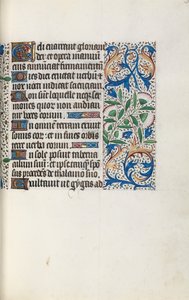 Celi enarrant gloriam
dei et opera manuu
eius annuciat firmamentum
Dies diei eructat verbu et
nox nocti indicat scientiam
Non sunt loquele neqz ser
mones quorum non audian
tur voces eorum
In omnem terram exivit
sonus eor et in fines orbis
terre verba eorum
In sole posuit taberna
culum suu et ipse tanqz spo
sus procedes de thalamo suo
Exultavit ut gygas ad